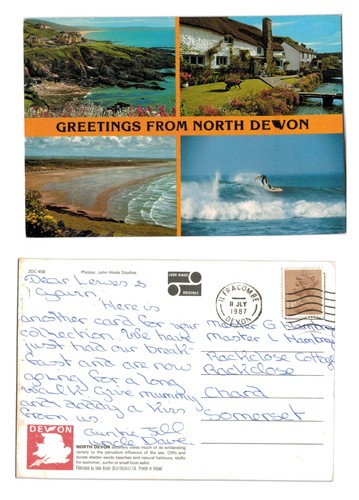 GREETINGS FROM NORTH DEVON
2DC 458
Photos: John Hinde Studios.
JOHN HINDE
ORIGINAL
ILFRACOMBE
11 JLY
1987
DEVON
Dear Lewes &
Gavin,
Here is
another card for your
collection. We have
just had our break-
fast and are now
going for a long
walk. Give mummy
and daddy a kiss
from us.
Auntie Jill
Uncle Dave.
Master G
Master L
Backclose Cottage
Backclose
Chard
Somerset
DEVON
NORTH DEVON
variety to the pervasive influence of the sea. Cliffs and
dunes shelter sandy beaches and natural harbours, idyllic
for swimmer, surfer or small boat sailor.
Published by John Hinde (Distributors) Ltd. Printed in Ireland